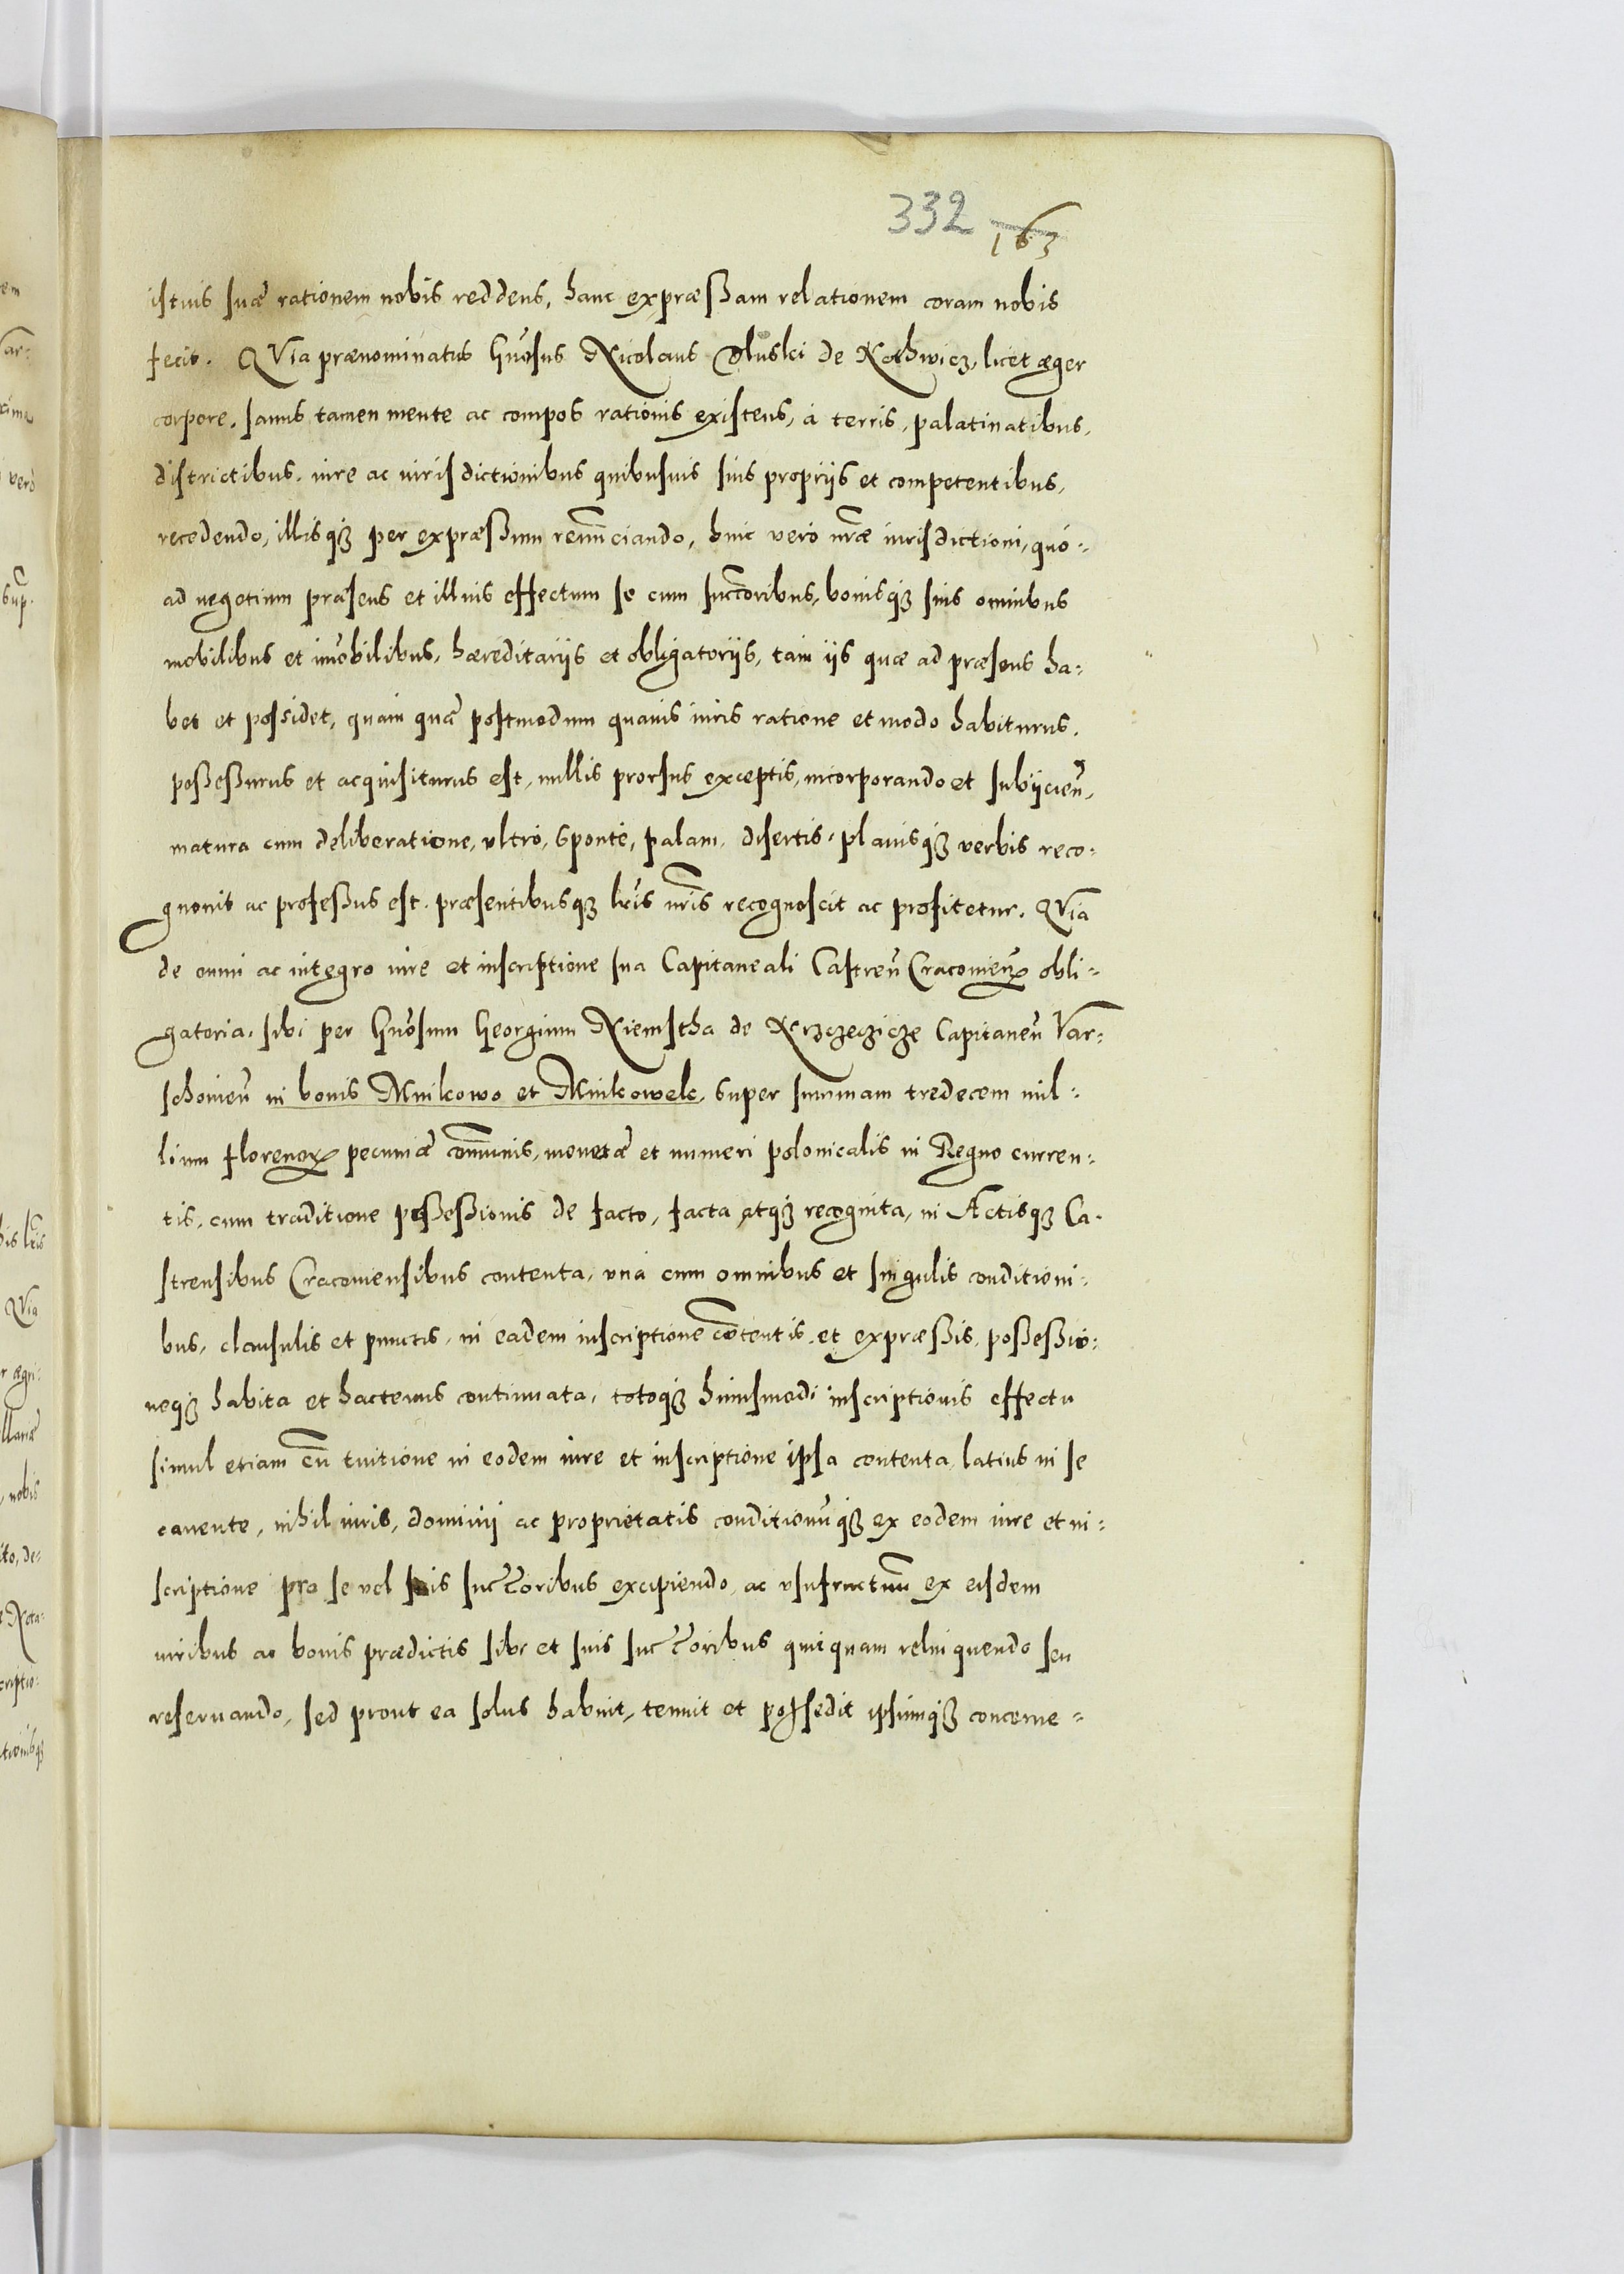 332 163
istius suæ rationem nobis reddens, hanc expræssam relationem coram nobis
fecit. QVia prænominatus Gnosus Nicolaus Oluski de Kothwicz, licet æger
corpore, sanus tamen mente ac compos rationis existens, à terris, palatinatibus,
districtibus, iure ac iurisdictionibus quibusuis suis propriis et competentibus,
recedendo, illisq3 per expræssum renunciando, huic verò nræ iurisdictioni, quo=
ad negotium præsens et illius effectum se cum succoribus, bonisq3 suis omnibus
mobilibus et imobilibus, hæreditariis et obligatoriis, tam iis quæ ad præsens ha=
bet et possidet, quam quæ postmodum quauis iuris ratione et modo habiturus,
possessurus et acquisiturus est, nullis prorsus exceptis, incorporando et subiicien,
matura cum deliberatione, vltrò, sponte, palam, disertis, planisq3 verbis reco=
gnouit ac professus est, præsentibusq3 lris nris recognoscit ac profitetur. QVia
de omni ac integro iure et inscriptione sua Capitaneali Castren Cracouien obli=
gatoria, sibi per Gnosum Georgium Niemstha de Krzczeczicze Capitaneu Var=
schouien in bonis Mnikowo et Mnikowek, super summam tredecem mil=
lium florenor pecuniæ comunis, monetæ et numeri polonicalis in Regno curren=
tis, cum traditione possessionis de facto, facta atq3 recognita, in Actisq3 Ca=
strensibus Cracouiensibus contenta, vnà cum omnibus et singulis conditioni=
bus, clausulis et punctis, in eadem inscriptione contentis et expræssis, possessio=
neq3 habita et hactenus continuata, totoq3 huiusmodi inscriptionis effectu
simul etiam cu tuitione in eodem iure et inscriptione ipsa contenta, latius in se
cauente, nihil iuris, dominij ac proprietatis conditionuq3 ex eodem iure et in=
scriptione pro se vel suis succoribus excipiendo, ac vsufructuu ex eisdem
iuribus ac bonis prædictis sibi et suis succoribus quiquam relinquendo seu
reseruando, sed prout ea solus habuit, tenuit et possedit ipsumq3 concerne=